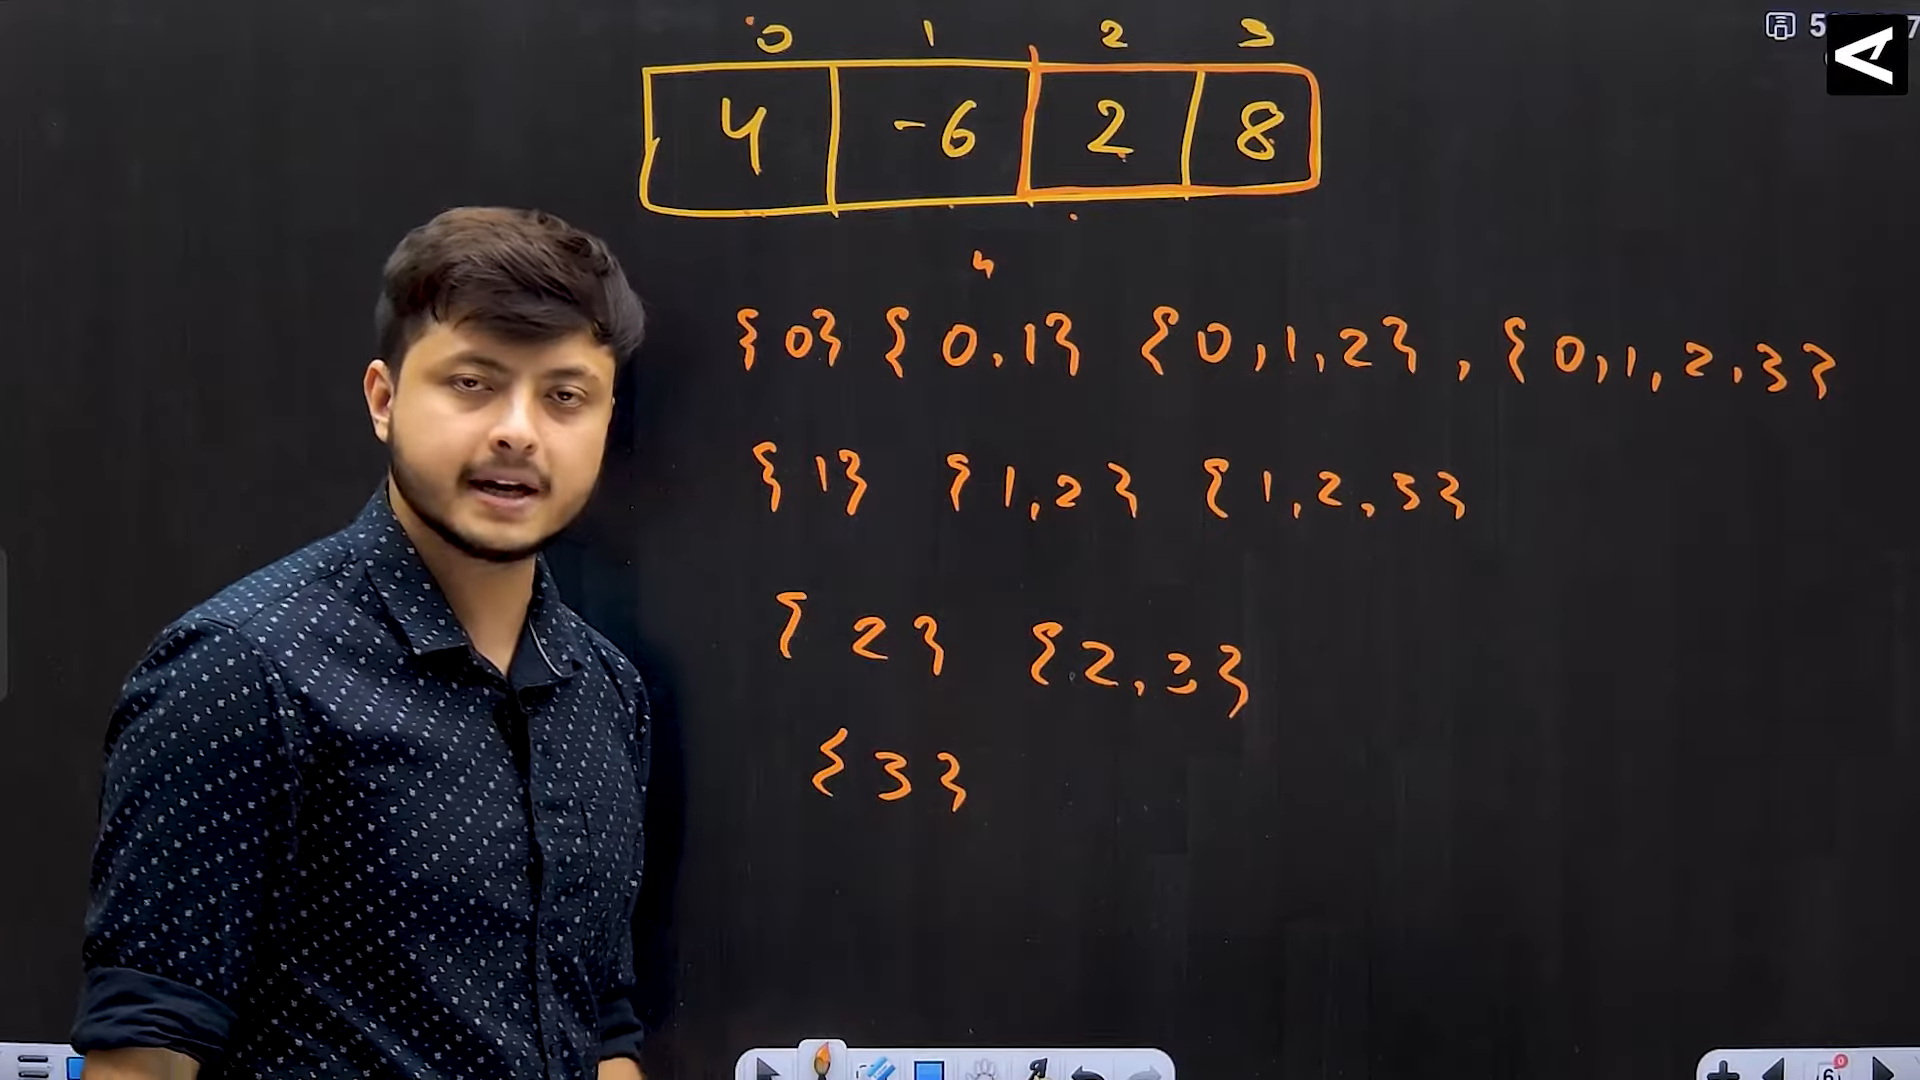 0 1 2 3
4 -6 2 8
4
{0} {0,1} {0,1,2}, {0,1,2,3}
{1} {1,2} {1,2,3}
{2} {2,3}
{3}